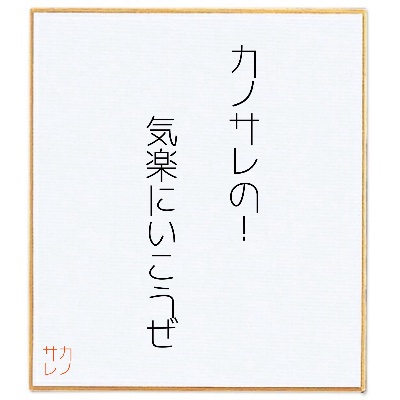 カノサレの！
気楽にいこうぜ
カノ
サレ